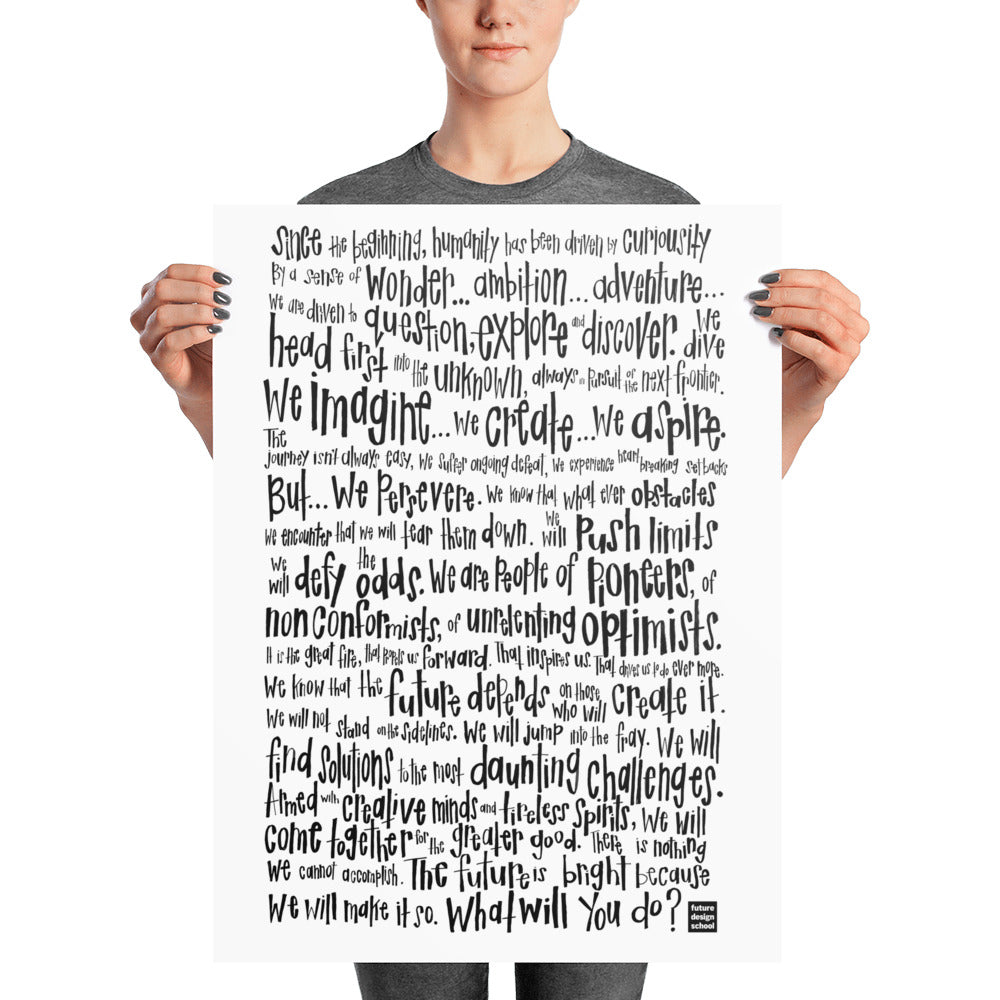 Since the beginning, humanity has been driven by curiosity
By a sense of wonder... ambition... adventure...
We are driven to question, explore and discover. We dive
head first into the unknown, always in pursuit of the next frontier.
We imagine... we create... we aspire.
The journey isn't always easy, we suffer ongoing defeat, we experience heart breaking setbacks
But... We Persevere. We know that what ever obstacles
we encounter that we will tear them down. We will push limits
We will defy the odds. We are people of pioneers, of
non conformists, of unrelenting optimists.
It is the great fire, that propels us forward. That inspires us. That drives us to do ever more.
We know that the future depends on those who will create it.
We will not stand on the sidelines. We will jump into the fray. We will
find solutions to the most daunting challenges.
Armed with creative minds and tireless spirits, We will
come together for the greater good. There is nothing
we cannot accomplish. The future is bright because
We will make it so. What will You do?
future
design
school